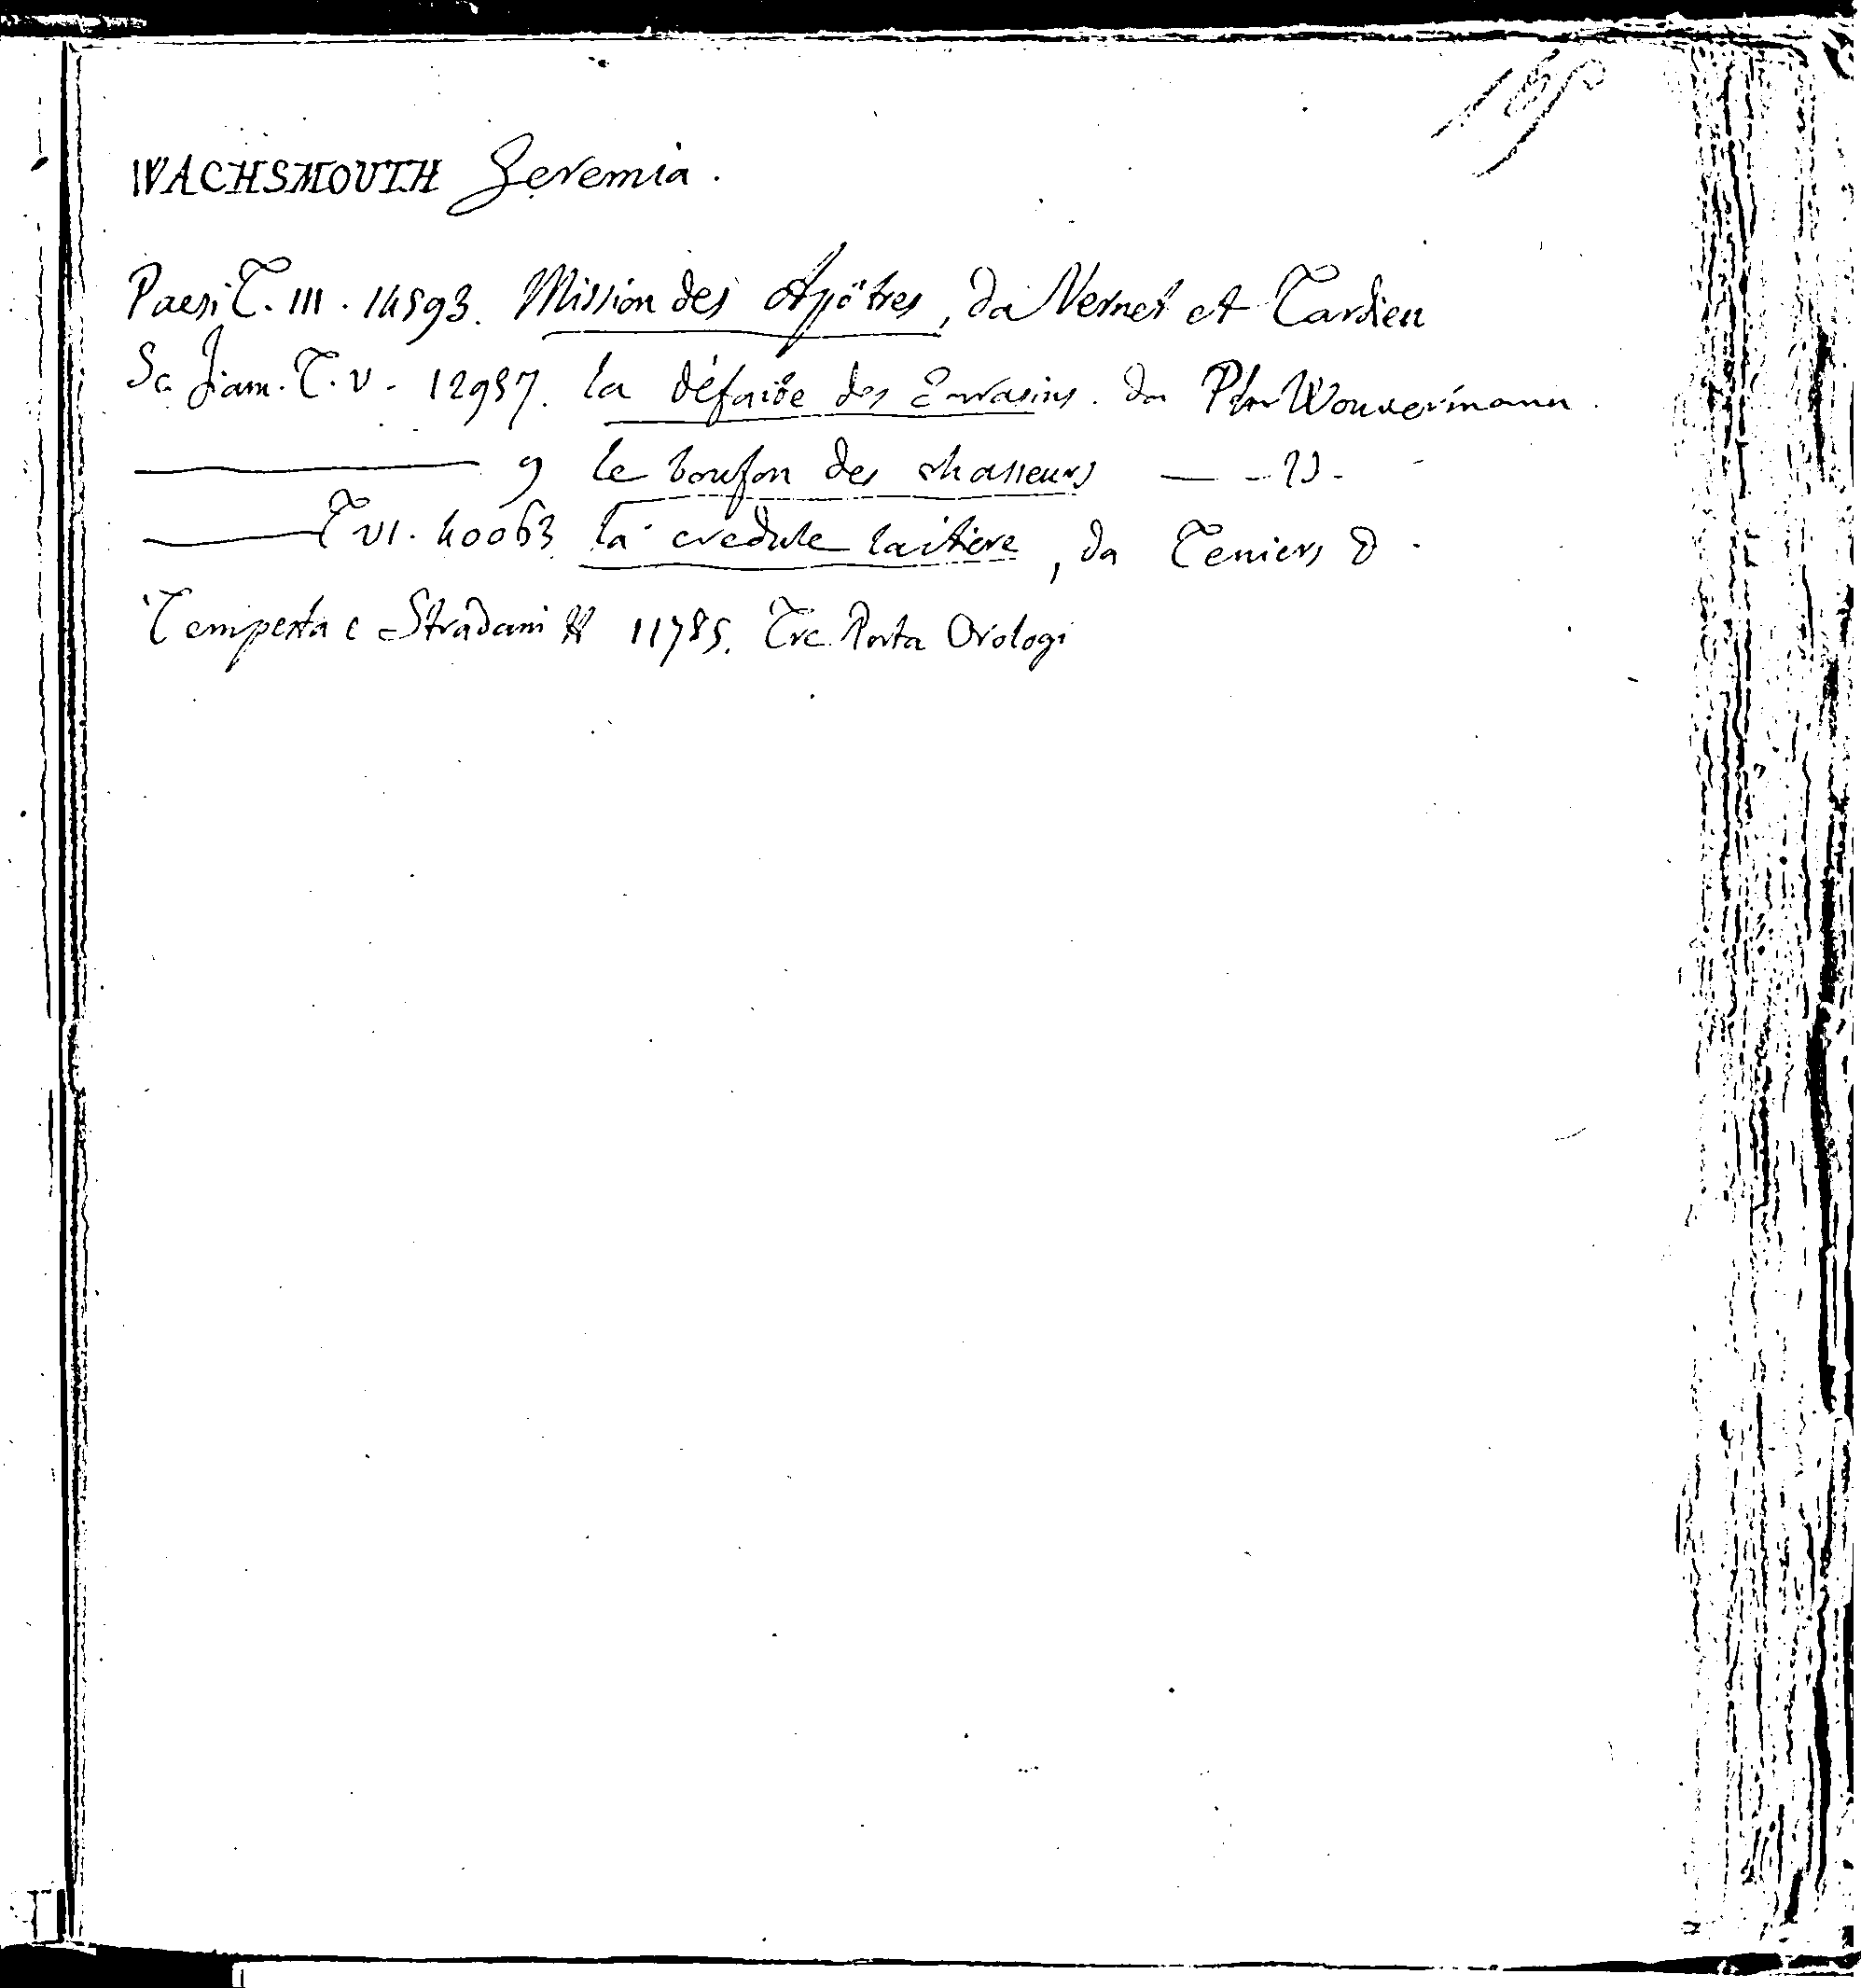 165
WACHSMOUTH Jeremia.
Paesi T. III. 14593. Mission des Apôtres, da Vernet et Tardieu
Sc. fiam. T. V. 12957. la défaite des Sarrasins. da Ph. Wouvermann.
9 le boufon des chasseurs — - 13.
T VI. 40063 la credule laitiere, da Teniers D.
Tempesta e Stradani 11785. Tre Porta Orologi